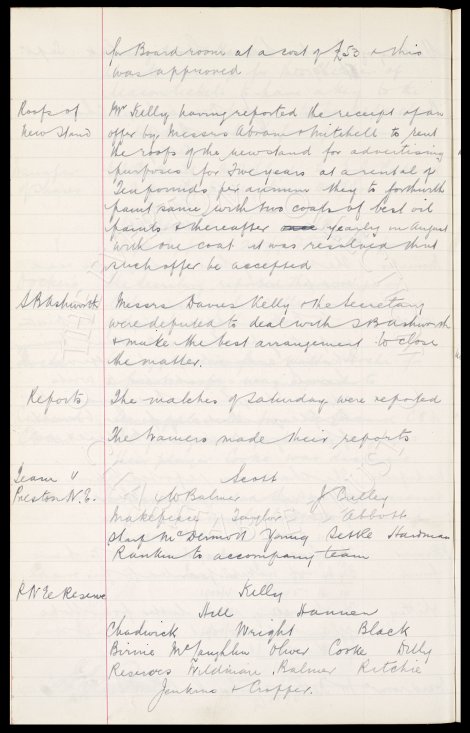 for Boardroom at a cost of £53 & this
was approved
Roofs of
new Stand
Mr Kelly having reported the receipt of an
offer by Messrs Abram & Mitchell to rent
the roofs of the new stand for advertising
purposes for Five years at a rental of
Ten pounds per annum they to forthwith
paint same with two coats of best oil
paints & thereafter yearly in August
with one coat it was resolved that
such offer be accepted
S B Ashworth
Messrs Davies Kelly & the Secretary
were deputed to deal with S B Ashworth
& make the best arrangement to close
the matter.
Reports
The matches of Saturday were reported
The trainers made their reports
Team v
Preston N.E.
Scott
W Balmer J Crelley
Makepeace Taylor Abbott
Sharp McDermott Young Settle Hardman
Rankin to accompany team
P N E Reserve
Kelly
Hill Hannon
Chadwick Wright Black
Birnie McLaughlin Oliver Cooke Dilly
Reserves Wildman, Balmer Ritchie
Jenkins & Cropper.